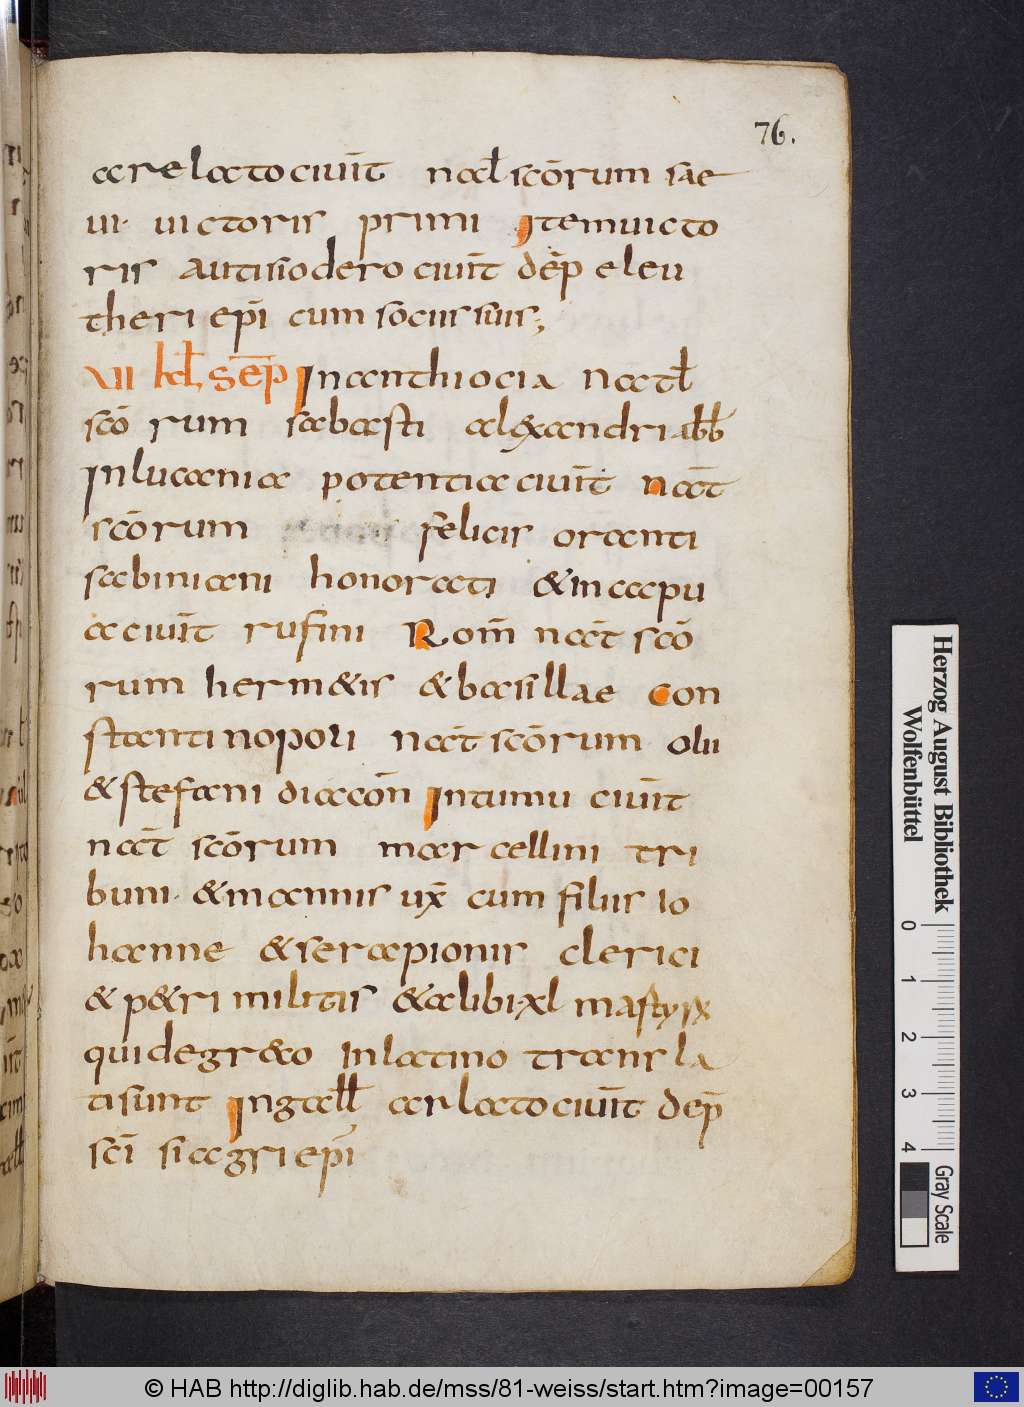 76.
arelato ciuit̄ nat̄l scōrum sae
ui· uictoris primi Item uicto
ris autisiodero ciuit̄ dep̄ eleu
theri ep̄i cum sociis suis;
VII kl̄, sep̄ In anthiocia natl̄
scō rum sabasti alexandri abb̄
In lucania potentia ciuit̄ nat̄
scōrum felicis oranti
sabiniani honorati & in capu
a ciuit̄ rufini Rom̄ nat̄ scō
rum herm&is & basillae Con
stantinopoli nat̄ scōrum olii
& stefani diacon̄ In tumu ciuit̄
nat̄ scōrum marcellini tri
buni· & mannis ux̄ cum filiis io
hanne & serapionis clerici
& p&ri militis & alibi xl martyrx
qui de greco In latino transla
ti sunt In gall̄ arlato ciuit̄ dep̄
scī siagri ep̄i
Herzog August Bibliothek
Wolfenbüttel
0 1 2 3 4
Gray Scale
© HAB http://diglib.hab.de/mss/81-weiss/start.htm?image=00157